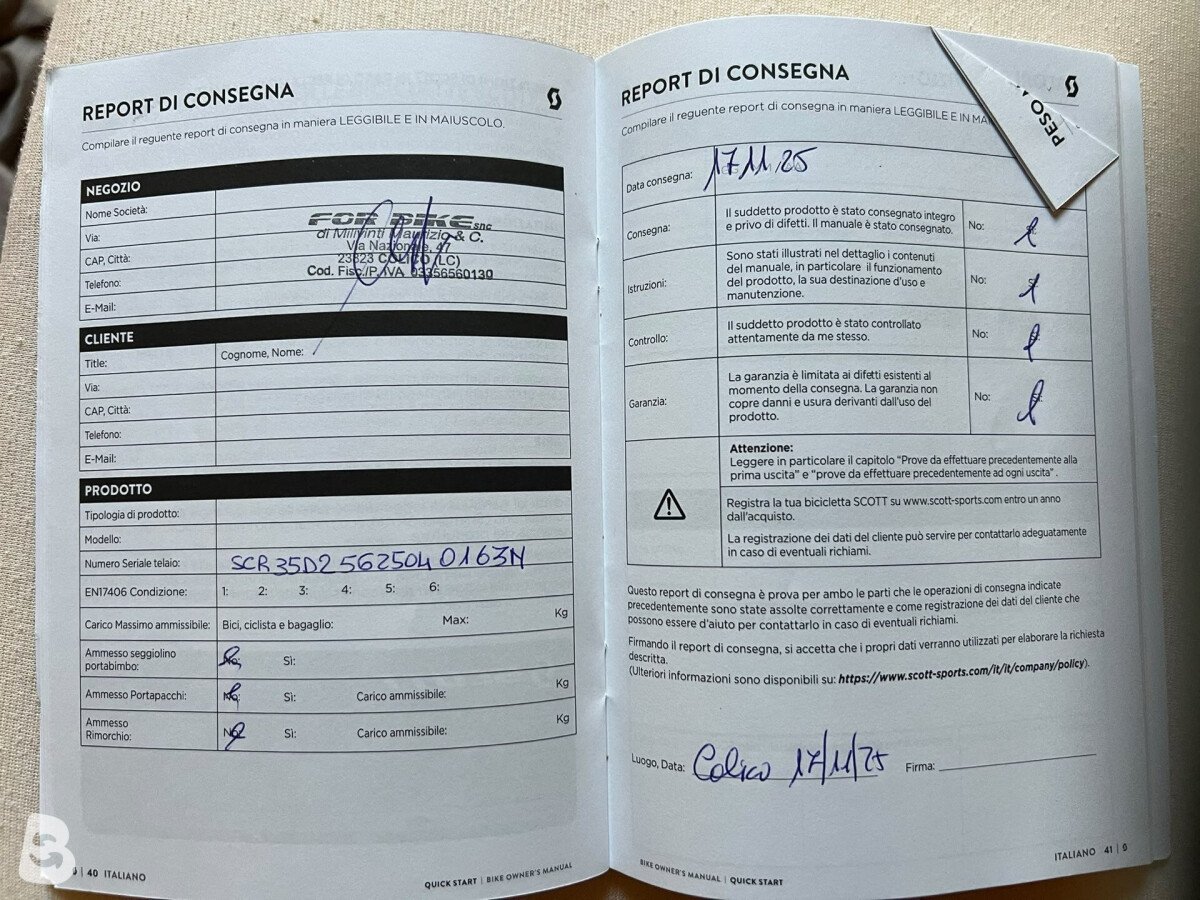 REPORT DI CONSEGNA
Compilare il reguente report di consegna in maniera LEGGIBILE E IN MAIUSCOLO.
NEGOZIO
Nome Società:
Via:
CAP, Città:
Telefono:
E-Mail:
FOR BIKE snc
di Milivinti Maurizio & C.
Via Nazionale, 47
23823 COLICO (LC)
Cod. Fisc./P. IVA 03356560130
CLIENTE
Title: Cognome, Nome:
Via:
CAP, Città:
Telefono:
E-Mail:
PRODOTTO
Tipologia di prodotto:
Modello:
Numero Seriale telaio: SCR35D25625040163N
EN17406 Condizione: 1: 2: 3: 4: 5: 6:
Carico Massimo ammissibile: Bici, ciclista e bagaglio: Max: Kg
Ammesso seggiolino
portabimbo: No: Sì:
Ammesso Portapacchi: No: Sì: Carico ammissibile: Kg
Ammesso
Rimorchio: No: Sì: Carico ammissibile: Kg
40 ITALIANO
QUICK START | BIKE OWNER'S MANUAL
REPORT DI CONSEGNA
Compilare il reguente report di consegna in maniera LEGGIBILE E IN
PESO
Data consegna: 17.11.25
Consegna: Il suddetto prodotto è stato consegnato integro
e privo di difetti. Il manuale è stato consegnato. No:
Istruzioni: Sono stati illustrati nel dettaglio i contenuti
del manuale, in particolare il funzionamento
del prodotto, la sua destinazione d'uso e
manutenzione. No:
Controllo: Il suddetto prodotto è stato controllato
attentamente da me stesso. No:
Garanzia: La garanzia è limitata ai difetti esistenti al
momento della consegna. La garanzia non
copre danni e usura derivanti dall'uso del
prodotto. No:
Attenzione:
Leggere in particolare il capitolo "Prove da effettuare precedentemente alla
prima uscita" e "prove da effettuare precedentemente ad ogni uscita" .
Registra la tua bicicletta SCOTT su www.scott-sports.com entro un anno
dall'acquisto.
La registrazione dei dati del cliente può servire per contattarlo adeguatamente
in caso di eventuali richiami.
Questo report di consegna è prova per ambo le parti che le operazioni di consegna indicate
precedentemente sono state assolte correttamente e come registrazione dei dati del cliente che
possono essere d'aiuto per contattarlo in caso di eventuali richiami.
Firmando il report di consegna, si accetta che i propri dati verranno utilizzati per elaborare la richiesta
descritta.
(Ulteriori informazioni sono disponibili su: https://www.scott-sports.com/it/it/company/policy).
Luogo, Data: Colico 17/11/25 Firma:
BIKE OWNER'S MANUAL | QUICK START
ITALIANO 41